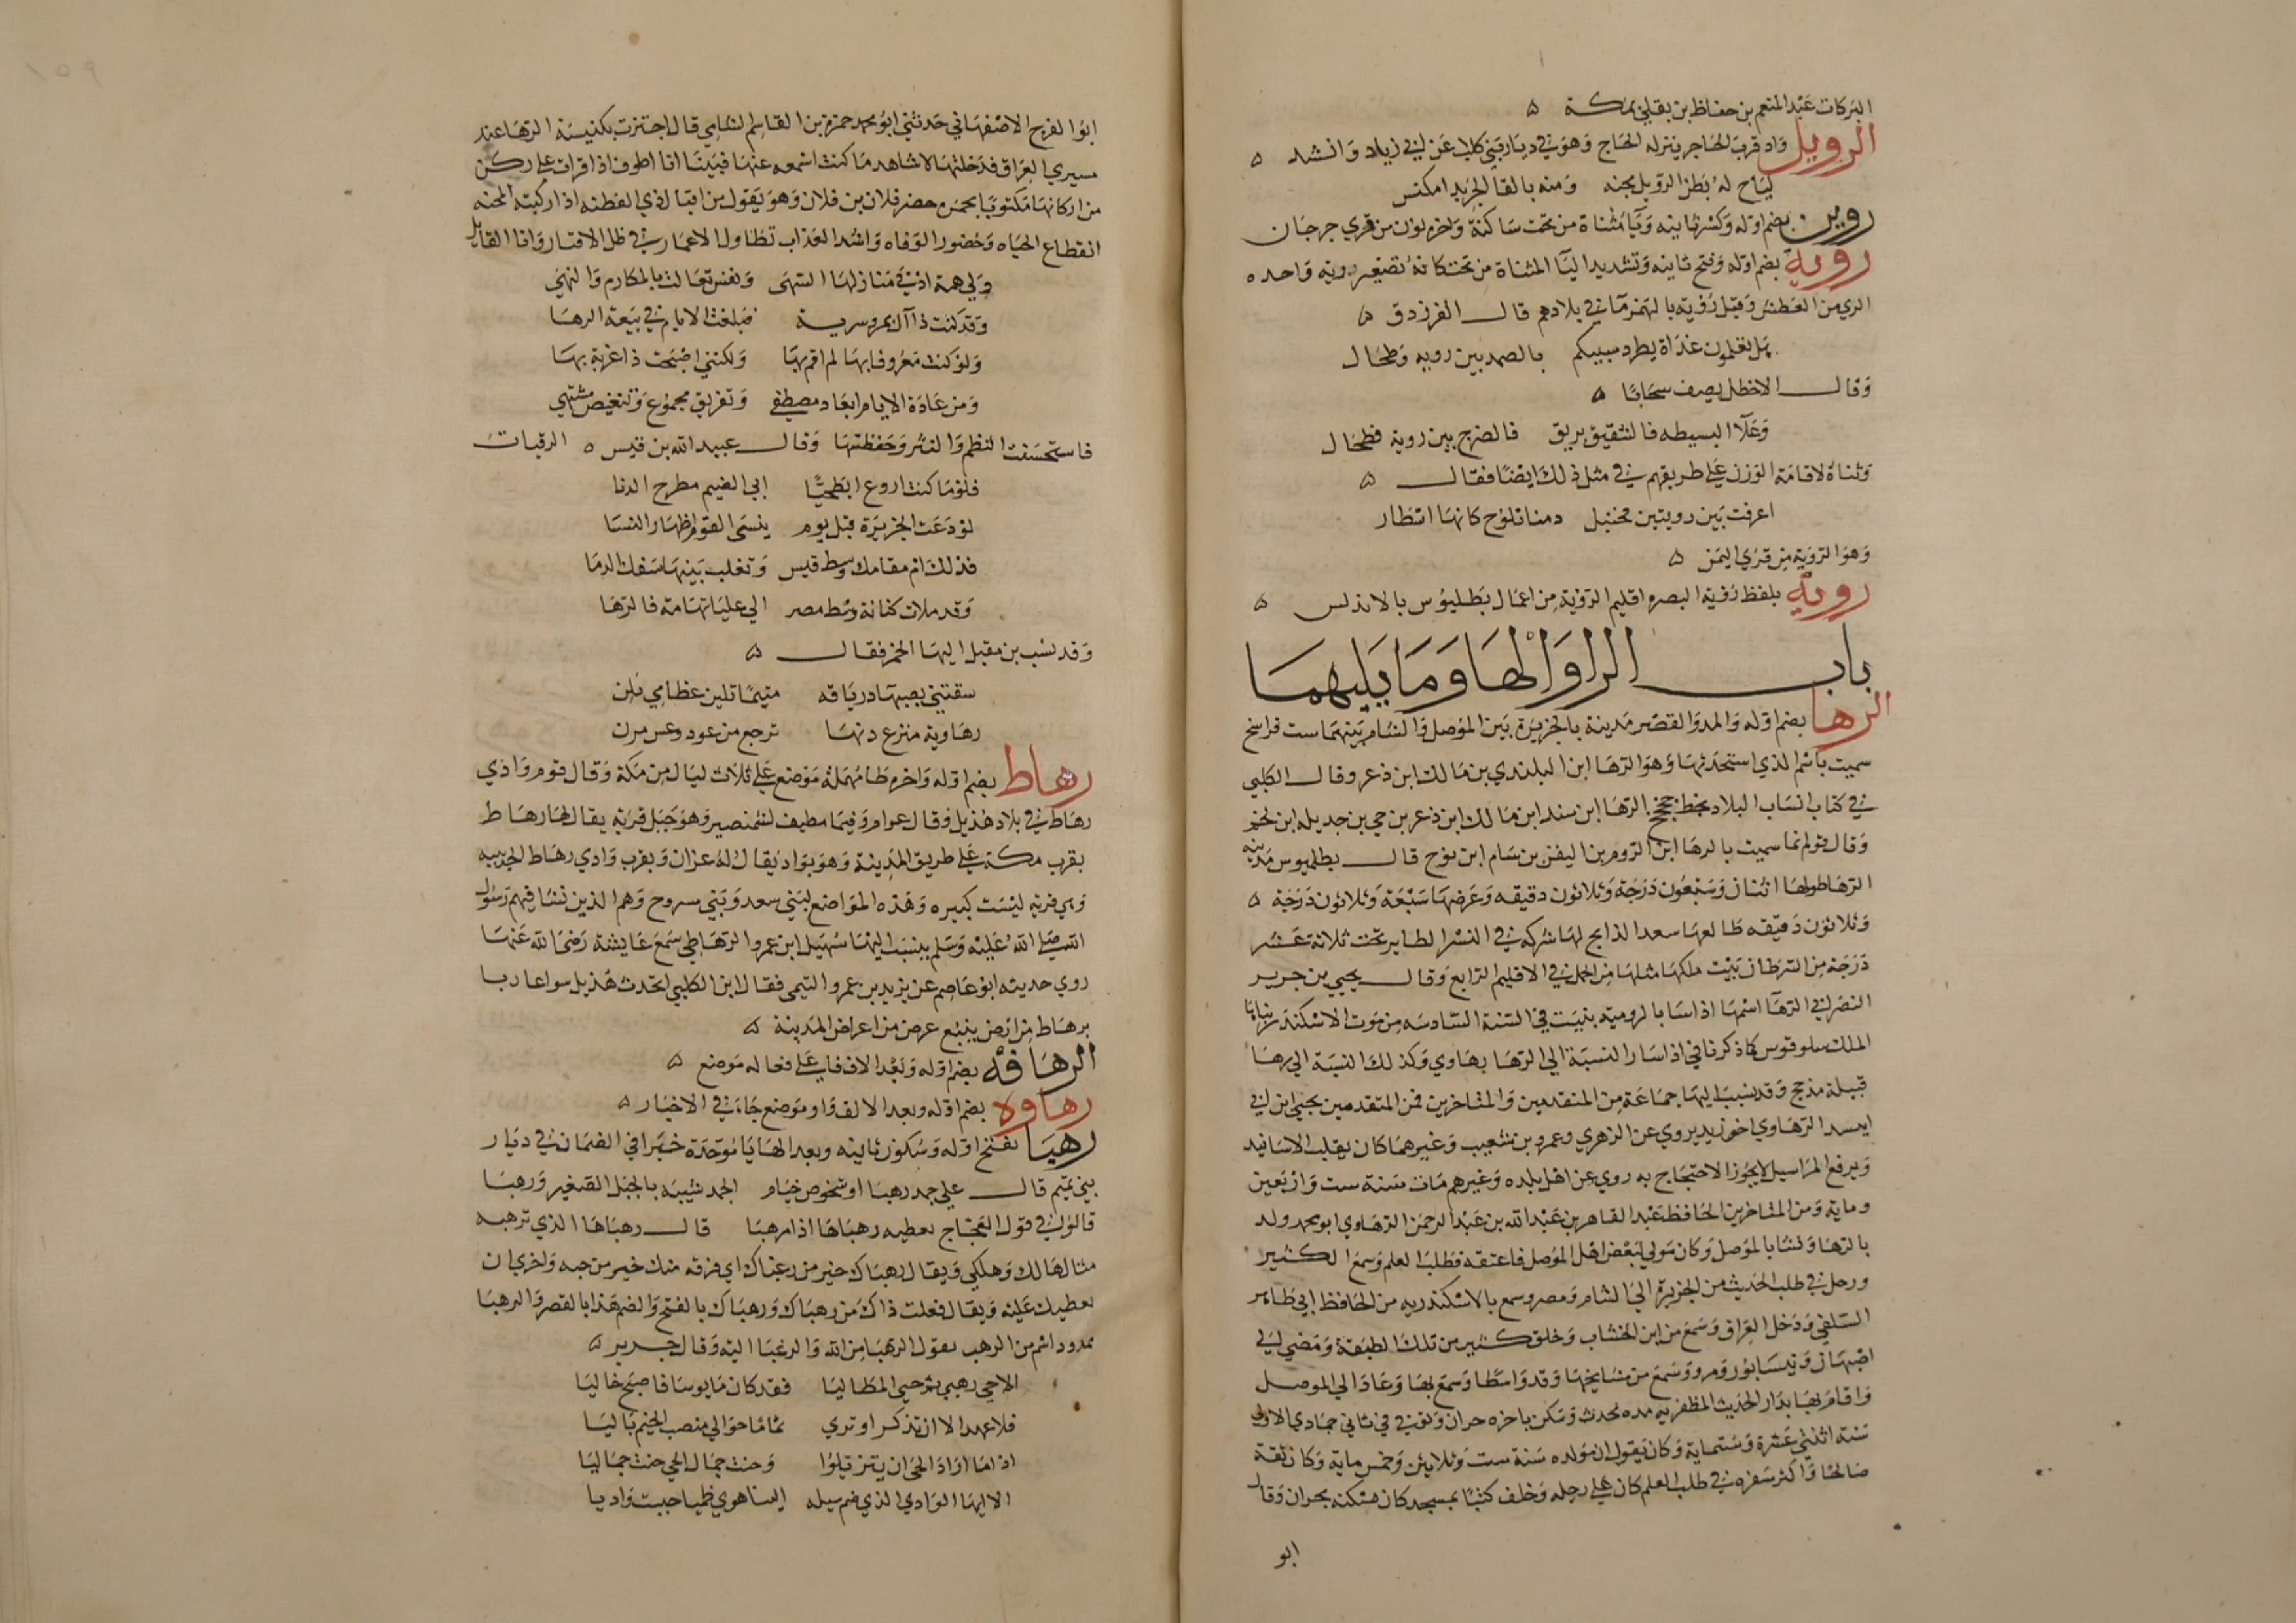 البركات عبد المنعم بن حفاظ بن بقلي بمكة ه
الرويل واد قرب الحاجر ينزله الحاج وهو في ديار بني كلاب عن ابي زياد وانشد ه
لياح له بطن الرويل مجنه ومنه بالقا الجريد امكنس
روين بضم اوله وكسر ثانيه ويا مثناة من تحت ساكنة واخره نون من قري جرجان
روية بضم اوله وفتح ثانيه وتشديد اليا المثناة من تحت كانه تصغير روية واحده
الري من العطش وقيل رؤية بالهمز ما في بلادهم قال الفرزدق ه
هل تعلمون غداة يطرد سبيكم بالصمد بين روية وطحال
وقال الاخطل يصف سحابا ه
وعلا البسيطه فالشقيق بريق فالضوج بين روية فطحال
وثناه لاقامة الوزن علي طريقهم في مثل ذلك ايضا فقال ه
اعرفت بين رويتين محنبل دمنا تلوح كانها اسطار
وهو الروية من قري اليمن ه
روية بلفظ رؤية البصر اقليم الرؤية من اعمال بطليوس بالاندلس ه
باب الرا والها وما يليهما
الرها بضم اوله والمد والقصر مدينة بالجزيرة بين الموصل والشام بينهما ست فراسخ
سميت باسم الذي استحدثها وهو الرها ابن البلندي بن مالك ابن ذعر وقال الكلبي
في كتاب انساب البلاد بخط جحجح الرها ابن سند ابن مالك ابن ذعر بن حي بن جديله ابن لخم
وقال قوم انما سميت بالرها ابن الروم بن اليفز بن سام ابن نوح قال بطلميوس مدينه
الرها طولها اثنان وسبعون درجة وثلاثون دقيقه وعرضها سبعة وثلاثون درجة ه
وثلاثون دقيقه طالعها سعد الذابح لها شركه في النسر الطاير تحت ثلاثة عشر
درجة من السرطان بيت ملكها مثلها من الحمل في الاقليم الرابع وقال يحيي بن جرير
النصراني الرها اسمها اذاسا بالرومية بنيت في السنة السادسه من موت الاسكندر بناها
الملك سلوقوس كما ذكرنا في اذاسا والنسبة الي الرها رهاوي وكذلك النسبة الي رها
قبيلة مذحج وقد نسب اليها جماعة من المتقدمين والمتاخرين فمن المتقدمين يحيي ابن ابي
ايسد الرهاوي اخو زيد يروي عن الزهري وعمرو بن شعيب وغيرهما كان يقلب الاسانيد
ويرفع المراسيل لا يجوز الاحتجاج به روي عن اهل بلده وغيرهم مات سنة ست واربعين
وماية ومن المتاخرين الحافظ عبد القاهر بن عبد الله بن عبد الرحمن الرهاوي ابو محمد ولد
بالرها ونشا بالموصل وكان مولي لبعض اهل الموصل فاعتقه فطلب العلم وسمع الكثير
ورحل في طلب الحديث من الجزيرة الي الشام ومصر وسمع بالاسكندريه من الحافظ ابي طاهر
السلفي ودخل العراق وسمع من ابن الخشاب وخلق كثير من تلك الطبقة ومضي الي
اصبهان ونيسابور ومرو وسمع من مشايخها وقد واسطا وسمع بها وعاد الي الموصل
واقام بها بدار الحديث المظفريه مده يحدث وسكن باخره حران وتوفي في ثاني جمادي الاولي
سنة اثنتي عشرة وستماية وكان يقول ان مولده سنة ست وثلاثين وخمس ماية وكان ثقة
صالحا واكثر سفره في طلب العلم كان علي رجله وخلف كتبا بمسجد كان مسكنه بحران وقال
ابو
ابو الفرج الاصفهاني حدثني ابو محمد حمزة بن القاسم الشامي قال اجتزت بكنيسة الرها عند
مسيري العراق فدخلتها لاشاهد ما كنت اسمعه عنها فبينا انا اطوف اذ اقرات علي ركن
من اركانها مكتوبا بحمرة حضر فلان بن فلان وهو يقول من اقبال ذي الفطنه اذا ركبته المحنه
انقطاع الحياه وحضور الوفاه واشد العذاب تطاول الاعمار في ظل الاقتار وانا القايل
ولي همة ادني منازلها السهي ونفس تعالت بالمكارم والنهي
وقد كنت ذا آل بمرو سرية فبلغت الايام في بيعة الرها
ولو كنت معروفا بها لم اقم بها ولكنني اصبحت ذا غربة بها
ومن عادة الايام ابعاد مصطفي وتفريق مجموع وتنغيص مشتهي
فاستحسنت النظم والنثر وحفظتها وقال عبيد الله بن قيس ه الرقيات
فلو ما كنت اروع ابطحيا ابي الضيم مطرح الدنا
لودعت الجزيرة قبل يوم ينسي القوم اظهار النسا
فذلك ام مقامك وسط قيس وتغلب بينها سفك الدما
وقد ملات كنانة وسط مصر الي عليا تهامة فالرها
وقد نسب بن مقبل اليها الخمر فقال ه
سقتني بصهبا درياقه متيما تلين عظامي تلن
رهاوية منزع دنها ترجع من عود وعس مرن
رهاط بضم اوله واخره طا مهملة موضع علي ثلاث ليال من مكة وقال قوم وادي
رهاط في بلاد هذيل وقال عرام وفيما يطيف لشمنصير وهو جبل قرية يقال لها رهاط
بقرب مكة علي طريق المدينة وهو بواد يقال له غران وبقرب وادي رهاط الحديبيه
وهي قرية ليست كبيره وهذه المواضع لبني سعد وبني مسروح وهم الذين نشا فيهم رسول
الله صلي الله عليه وسلم ينسب اليها سهيل ابن عمرو الرهاطي سمع عايشة رضي الله عنها
روي حديثه ابو عاصم عن يزيد بن عمرو التيمي فقال ابن الكلبي اتحدث هذيل سواعا ربا
برهاط من ارض ينبع عرض من اعراض المدينة ه
الرهافة بضم اوله وبعد الالف فا علي فعاله موضع ه
رهاوة بضم اوله وبعد الالف واو موضع جاء في الاخبار ه
رهبا بفتح اوله وسكون ثانيه وبعد الها يا موحدة خبرا في الضمان في ديار
بني تميم قال علي جمد رهبا او شخوص خيام الجمد شبيه بالجبل الصغير ورهبا
قالو في قول العجاج تعطيه رهباها اذا مرهبا قال رهباها الذي ترهبه
مثال هالك وهلكي ويقال رهباك خير من رغباك اي فرقه منك خير من حبه واخري ان
يعطيك عليه ويقال فعلت ذاك من رهباك ورهباك بالفتح والضم هذا بالقصر والرهبا
ممدود اسم من الرهب يقول الرهبا من الله والرغبا اليه وقال جرير ه
الاحي رهبي ثم حي المطاليا فقد كان مايوسا فاصبح خاليا
فلا عهد الا ان تذكر او تري ثماما حوالي منصب الخيم باليا
اذا ما اراد الحي ان يتزيلوا وحنت جمال الحي حنت جماليا
الا ايها الوادي الذي ضم سيله الينا هوي ظميا حبيت واديا